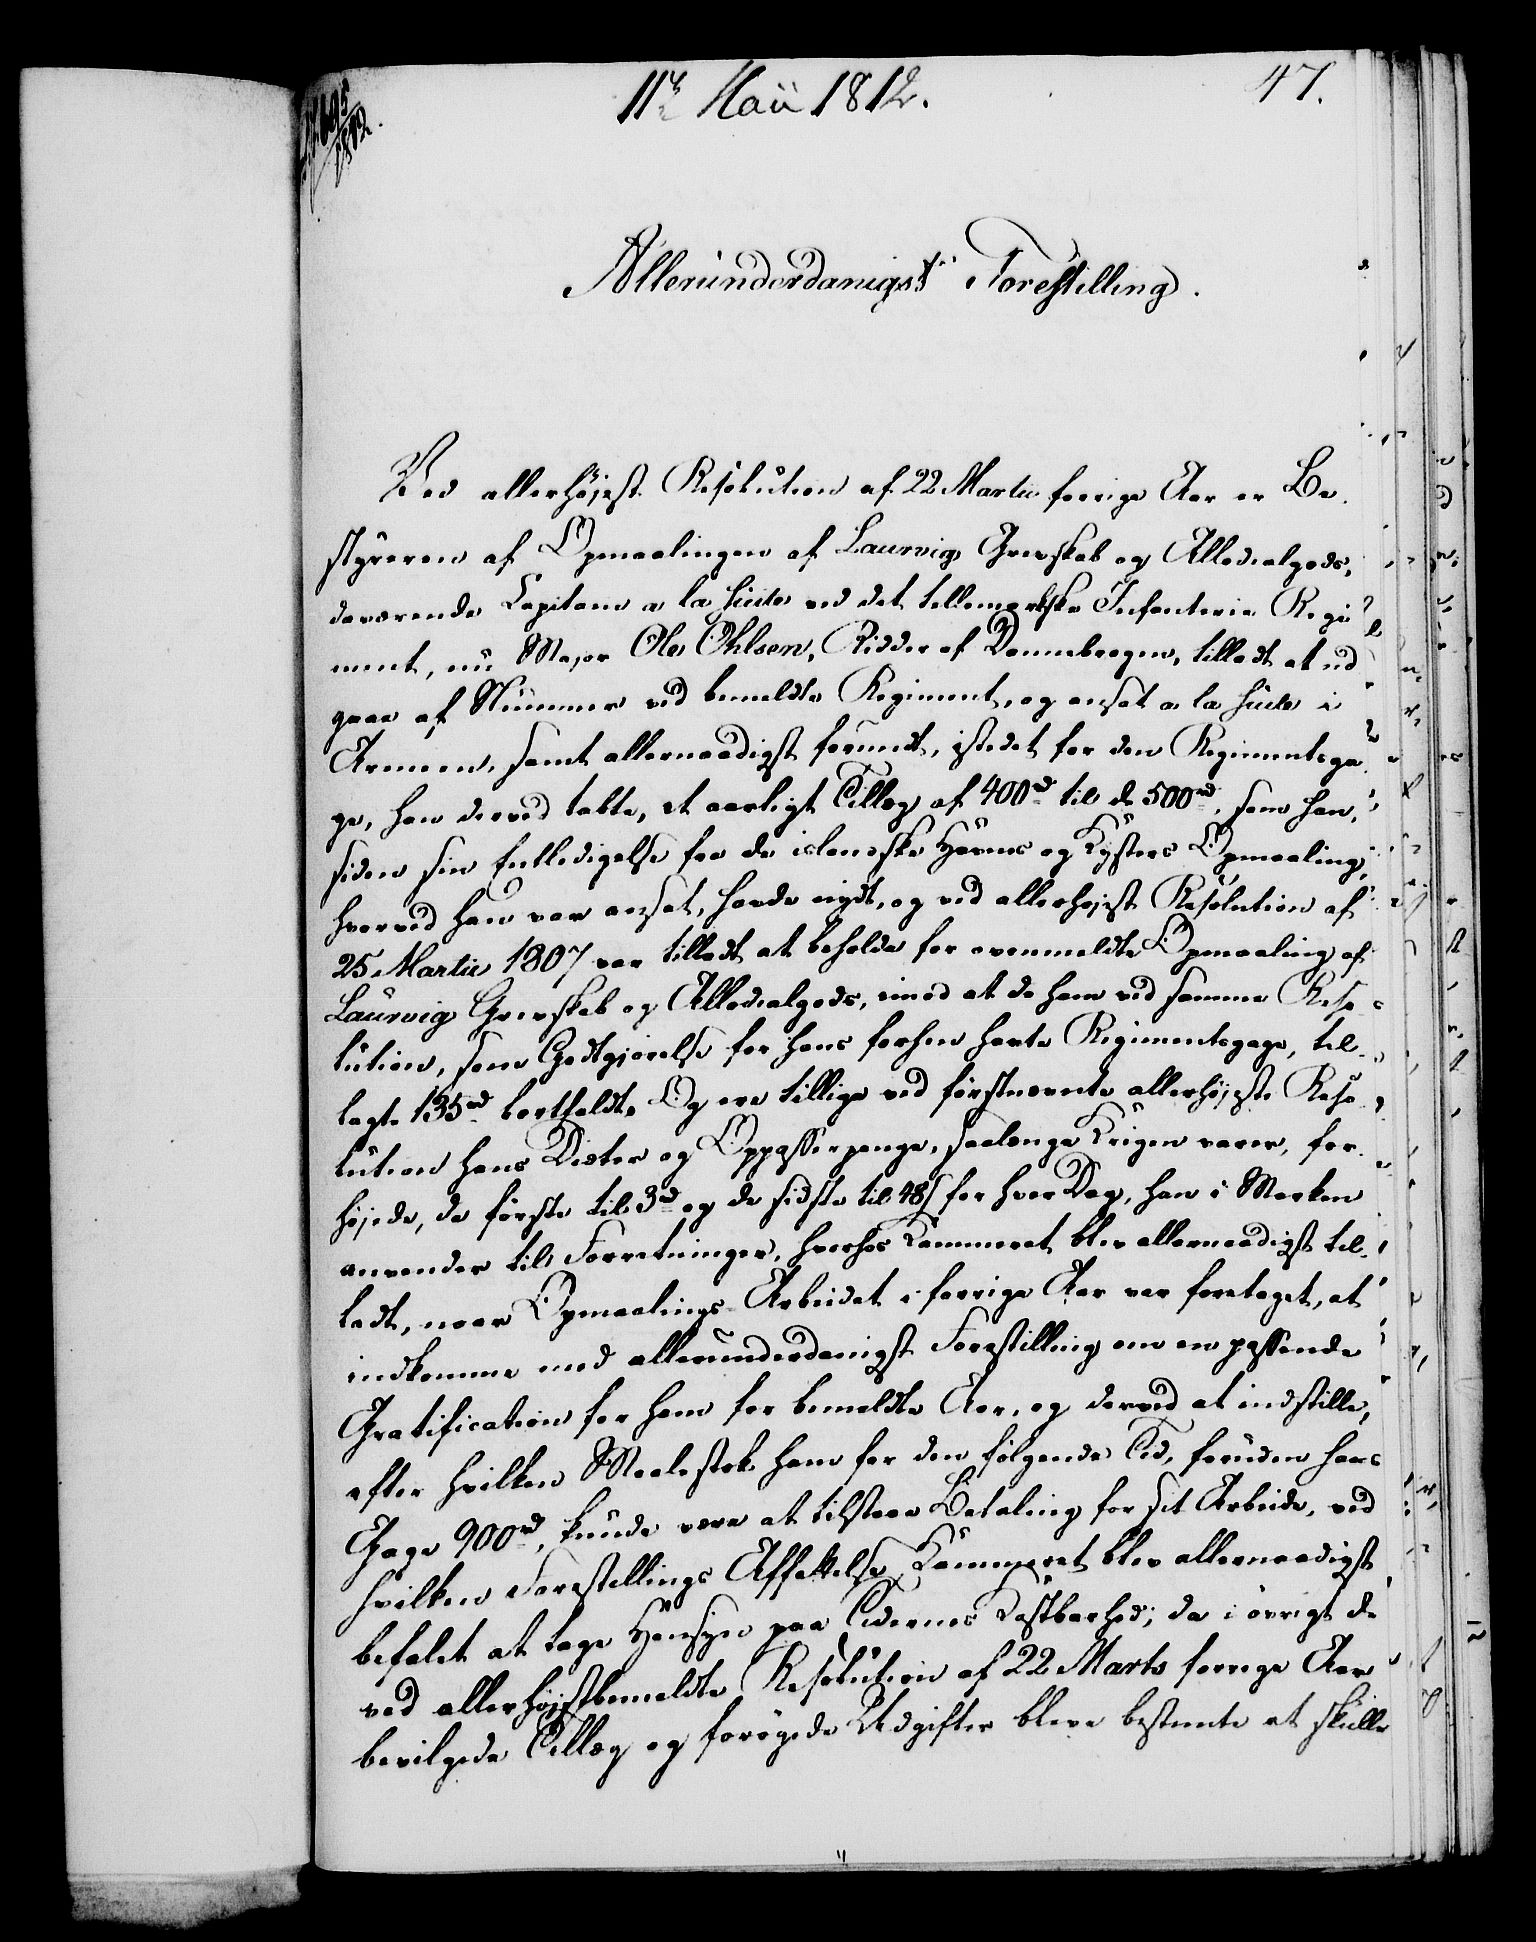 11te Maii 1812.
47.
695
1812.
Allerunderdanigst Forestilling.
Ved allerhöjest Resolution af 22 Martii forrige Aar er Be-
styreren af Opmaalingen af Laurvigs Grevskab og Allodialgods,
daværende Capitain a la Suite ved det tellemarkske Infanterie Regi
ment, nu Major Ole Ohlsen, Ridder af Dannebrogen, tilladt at ud
gaae af Nummer ved bemeldte Regiment, og ansat a la Suite i
Armeen, samt allernaadigst forundt, istedet for den Regimentsga
ge, han derved tabte, et aarligt Tillæg af 400rd til de 500rd, som han,
siden sin Entledigelse fra de islandske Havnes og Kysters Opmaaling,
hvorved han var ansat, havde nydt, og ved allerhöjest Resolution af
25 Martii 1807 var tilladt at beholde for ovenmeldte Opmaaling af
Laurvig Grevskab og Allodialgods, imod at de ham ved samme Reso
lution, som Godtgjörelse for hans forhen havte Regimentsgage, til-
lagte 135rd bortfaldt. Og ere tillige ved förstnævnte allerhöjeste Reso
lution hans Diæter og Oppasserpenge, saalænge Krigen varer, for-
höjede, de förste til 3rd og de sidste til 48s for hver Dag, han i Marken
anvender til Forretninger, hvorhos Kammeret blev allernaadigst til-
ladt, naar Opmaalings-Arbeidet i forrige Aar var foretaget, at
indkomme med allerunderdanigst Forestilling om en passende
Gratification for ham for bemeldte Aar, og derved at indstille,
efter hvilken Maalestok ham for den fölgende Tid, foruden hans
Gage 900rd, kunde være at tilstaae Betaling for sit Arbeide, ved
hvilken Forestillings Affattelse Kammeret blev allernaadigst
befalet at tage Hensyn paa Tidernes Kostbarhed; da i övrigt de
ved allerhöjstbemeldte Resolution af 22 Marts forrige Aar
bevilgede Tillæg og forögede Udgifter bleve bestemte at skulle